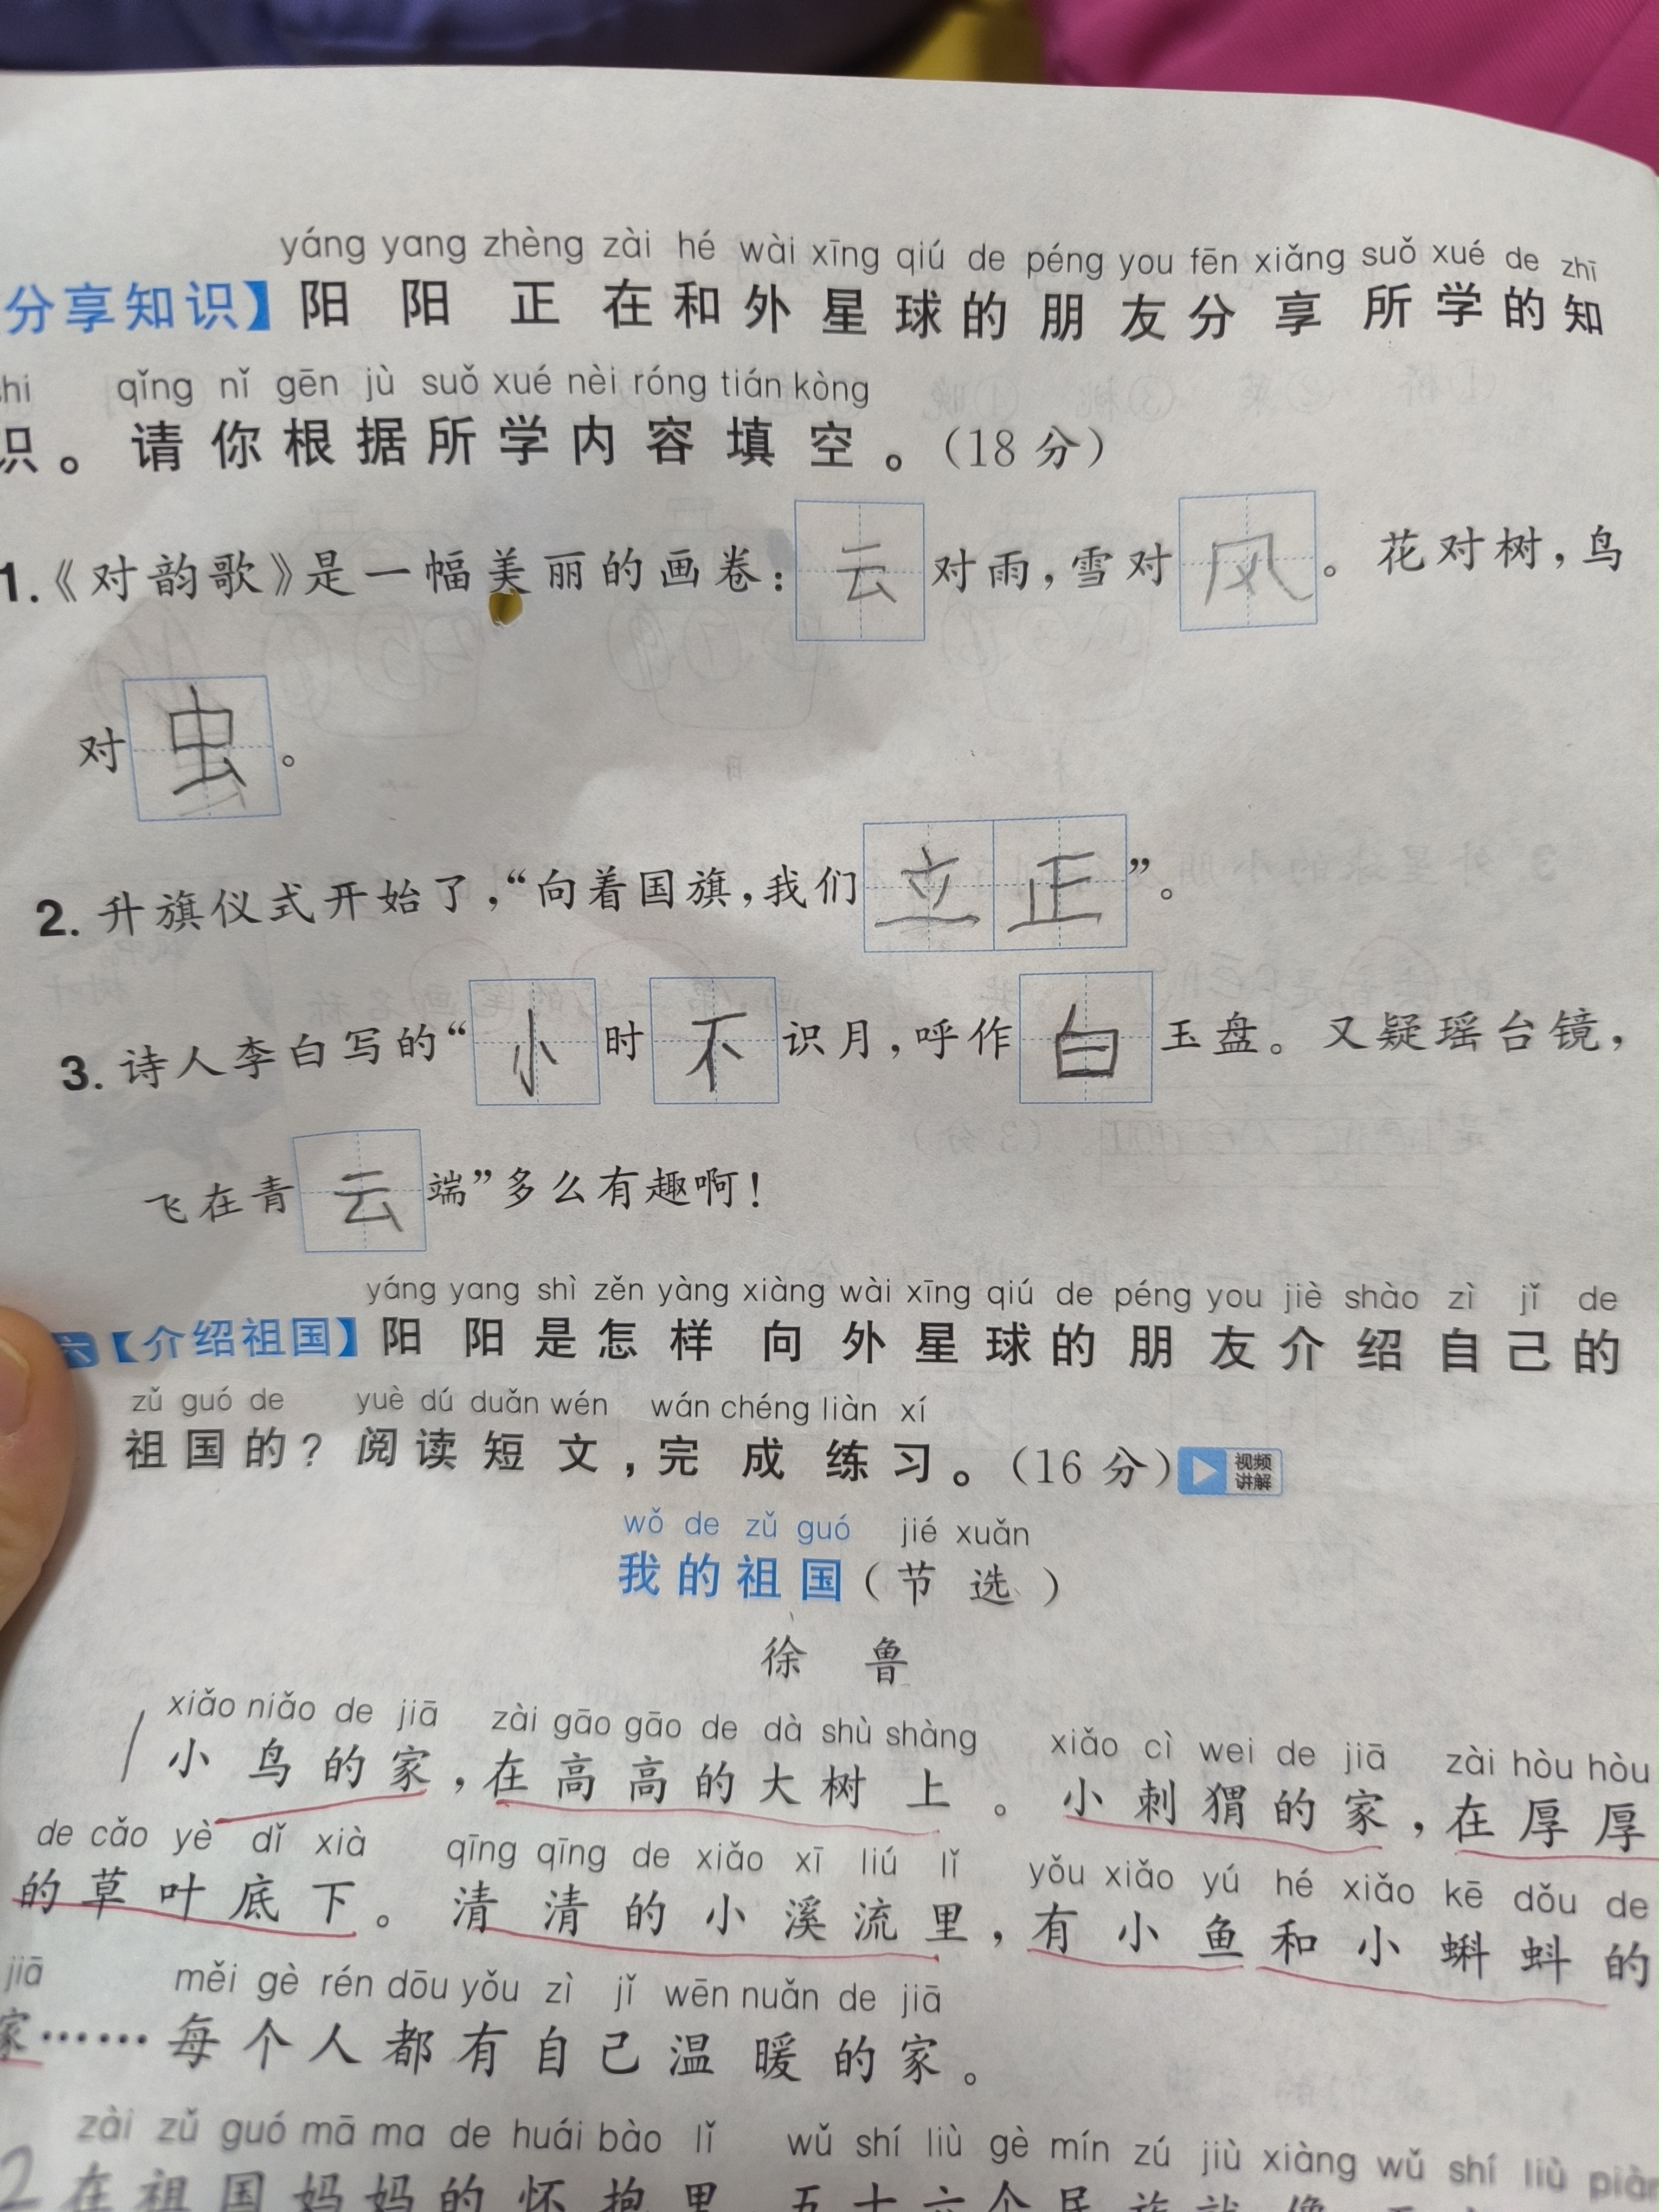 yáng yang zhèng zài hé wài xīng qiú de péng you fēn xiǎng suǒ xué de zhī
分享知识】阳阳正在和外星球的朋友分享所学的知
shi qǐng nǐ gēn jù suǒ xué nèi róng tián kòng
识。请你根据所学内容填空。(18分)
1.《对韵歌》是一幅美丽的画卷:云对雨,雪对风。花对树,鸟
对虫。
2. 升旗仪式开始了,“向着国旗,我们立正”。
3. 诗人李白写的“小时不识月,呼作白玉盘。又疑瑶台镜,
飞在青云端”多么有趣啊!
yáng yang shì zěn yàng xiàng wài xīng qiú de péng you jiè shào zì jǐ de
六【介绍祖国】阳阳是怎样向外星球的朋友介绍自己的
zǔ guó de yuè dú duǎn wén wán chéng liàn xí
祖国的?阅读短文,完成练习。(16分)视频讲解
wǒ de zǔ guó jié xuǎn
我的祖国(节选)
徐鲁
xiǎo niǎo de jiā zài gāo gāo de dà shù shàng xiǎo cì wei de jiā zài hòu hòu
小鸟的家,在高高的大树上。小刺猬的家,在厚厚
de cǎo yè dǐ xià qīng qīng de xiǎo xī liú lǐ yǒu xiǎo yú hé xiǎo kē dǒu de
的草叶底下。清清的小溪流里,有小鱼和小蝌蚪的
jiā měi gè rén dōu yǒu zì jǐ wēn nuǎn de jiā
家……每个人都有自己温暖的家。
zài zǔ guó mā ma de huái bào lǐ wǔ shí liù gè mín zú jiù xiàng wǔ shí liù piàn
2在祖国妈妈的怀抱里 五十六个民族就像